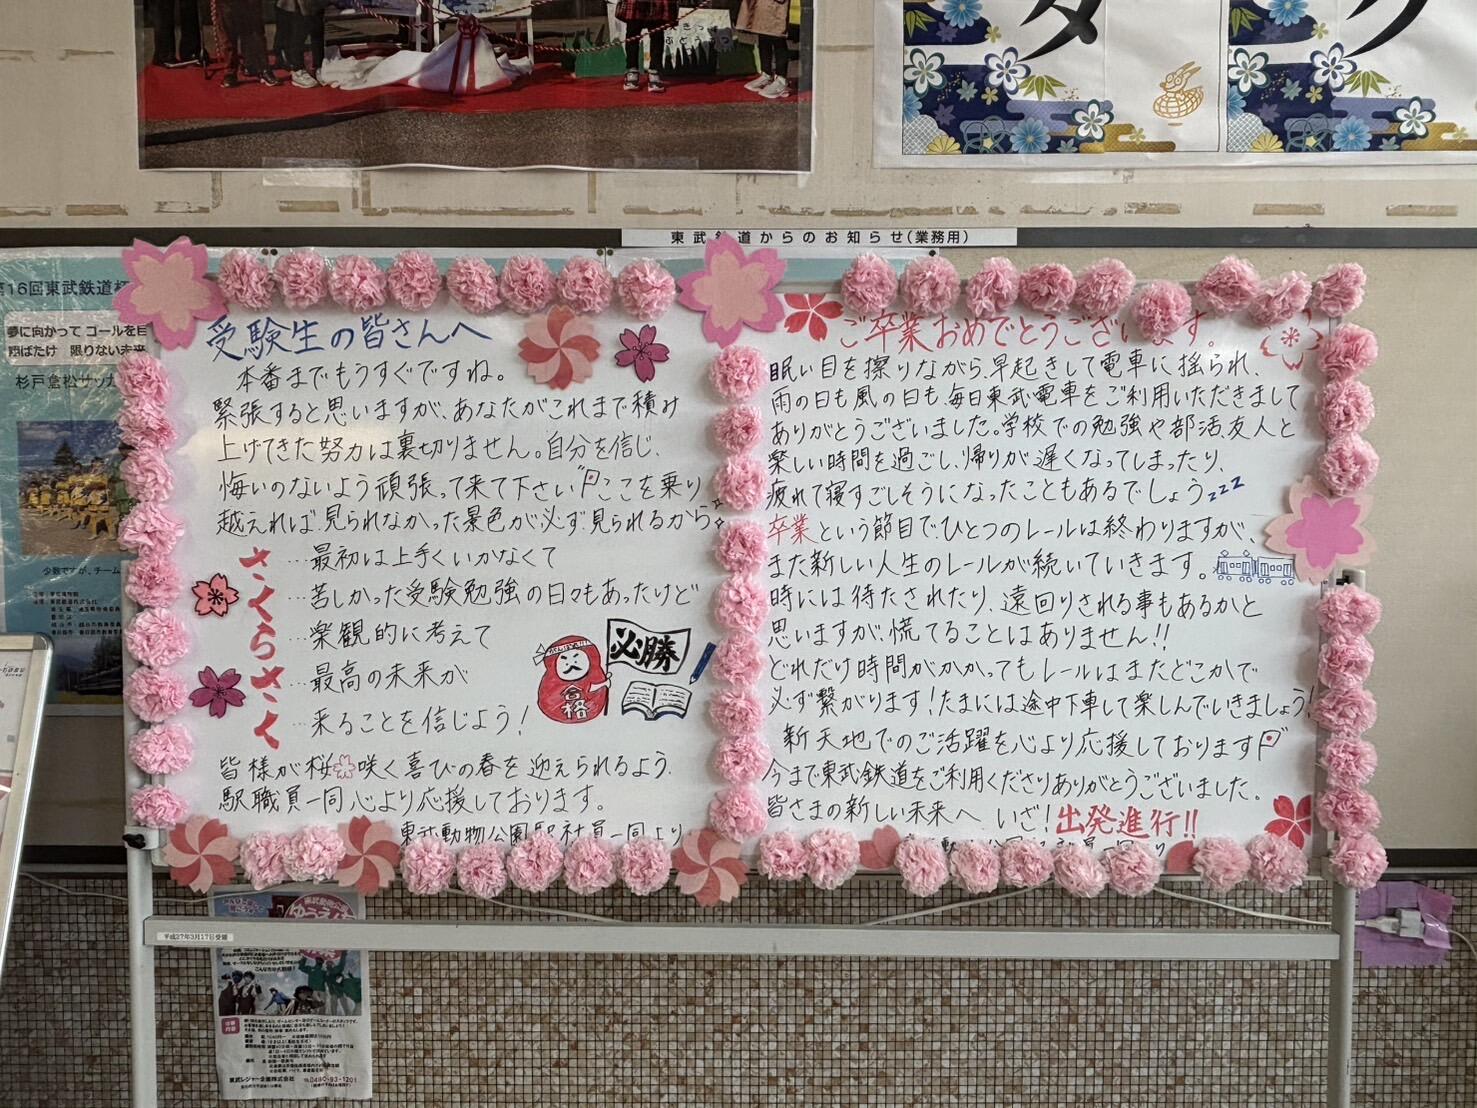 ぶどう
タ
ク
東武鉄道からのお知らせ(業務用)
第16回東武鉄道杯
夢に向かって ゴールを目
翔ばたけ 限りない未来
杉戸倉松サッカ
受験生の皆さんへ
本番までもうすぐですね。
緊張すると思いますが、あなたがこれまで積み
上げてきた努力は裏切りません。自分を信じ、
悔いのないよう頑張って来て下さい ここを乗り
越えれば、見られなかった景色が必ず見られるから。
さくらさく
…最初は上手くいかなくて
…苦しかった受験勉強の日々もあったけど
…楽観的に考えて
…最高の未来が
…来ることを信じよう!
がんばれ!!
必勝
合格
皆様が桜咲く喜びの春を迎えられるよう、
駅職員一同心より応援しております。
東武動物公園駅社員一同より
ご卒業おめでとうございます。
眠い目を擦りながら、早起きして電車に揺られ、
雨の日も風の日も、毎日東武電車をご利用いただきまして
ありがとうございました。学校での勉強や部活、友人と
楽しい時間を過ごし、帰りが遅くなってしまったり、
疲れて寝すごしそうになったこともあるでしょうzzz
卒業という節目で、ひとつのレールは終わりますが、
また新しい人生のレールが続いていきます。
時には待たされたり、遠回りされる事もあるかと
思いますが、慌てることはありません!!
どれだけ時間がかかってもレールはまたどこかで
必ず繋がります!たまには途中下車して楽しんでいきましょう!
新天地でのご活躍を心より応援しております
今まで東武鉄道をご利用くださりありがとうございました。
皆さまの新しい未来へ いざ!出発進行!!
平成27年3月17日受領
東武レジャー企画株式会社
0480-93-1201